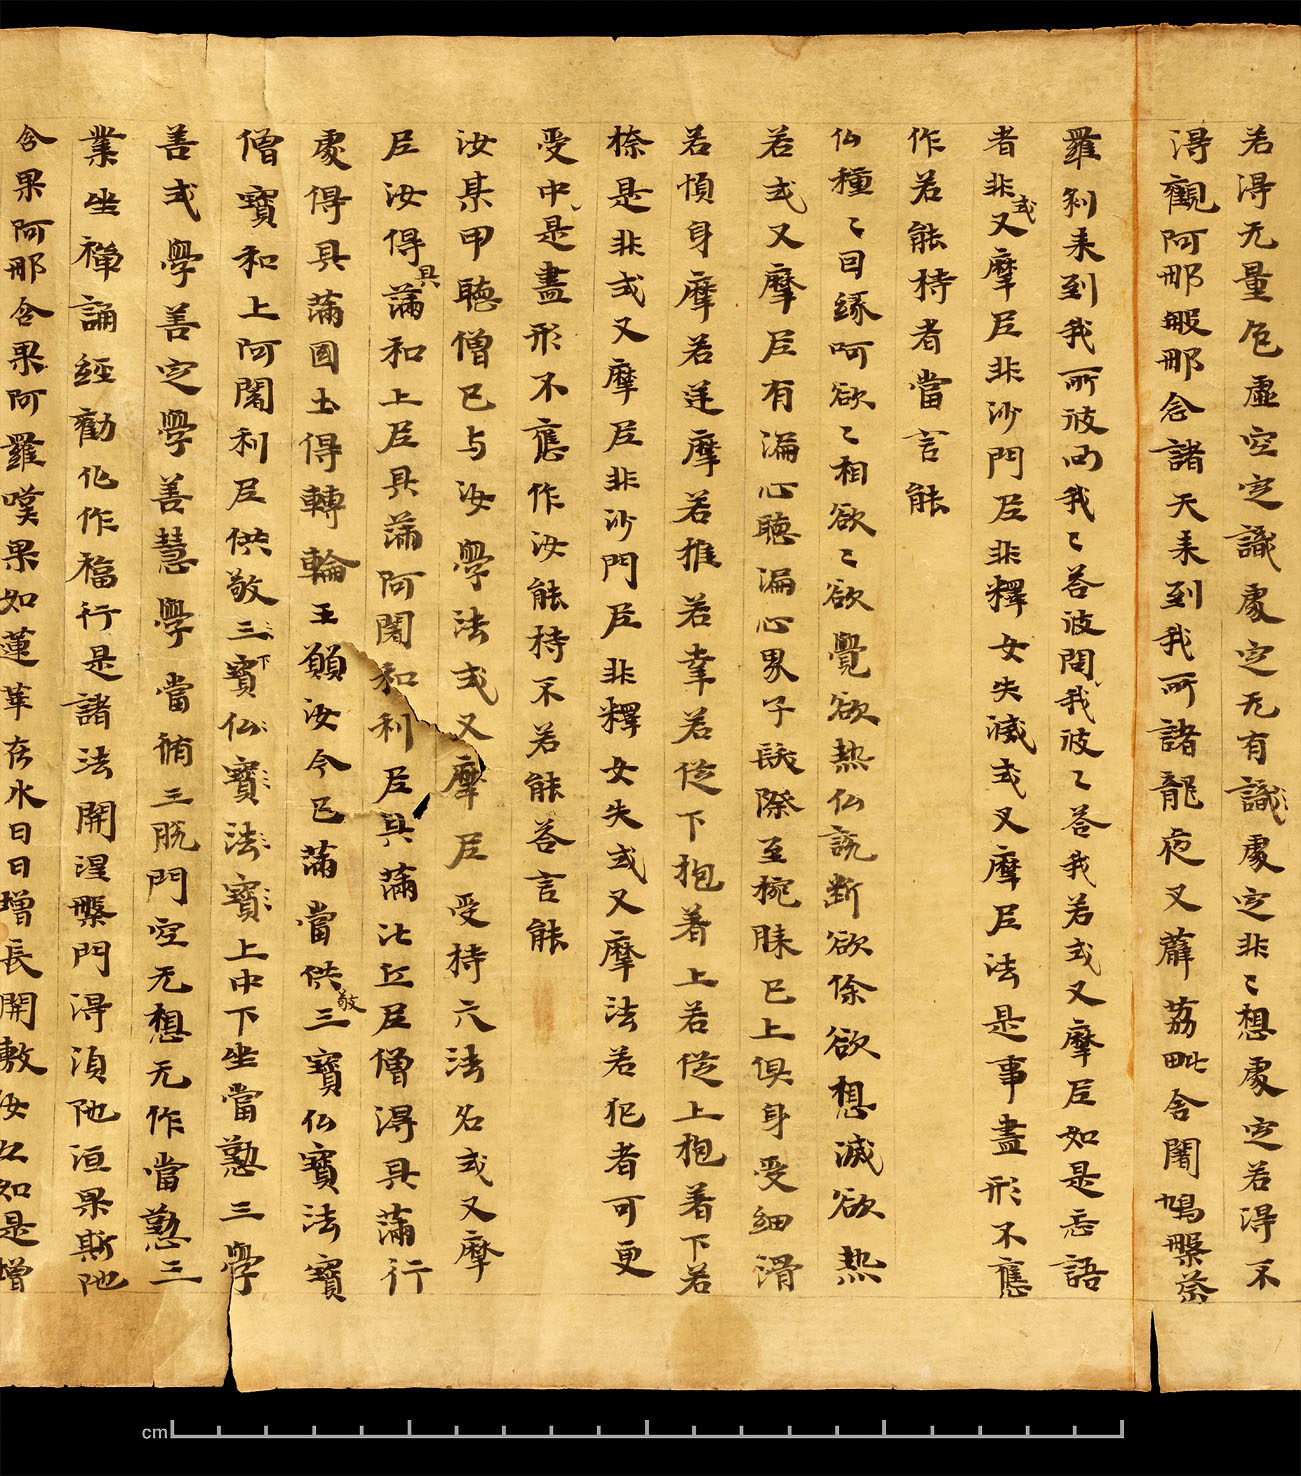 若得无量色虛空定識處定无有識處定非〻想處定若得不
得觀阿那般那念諸天来到我所諸龍夜叉薜荔毗舍闍鳩槃荼
羅刹来到我所彼问我〻荅彼問我彼〻荅我若式叉摩尼如是忘語
者非式叉摩尼非沙門尼非釋女失滅式叉摩尼法是事盡形不應
作若能持者當言能
仏種〻因緣呵欲〻相欲〻欲覺欲熱仏說断欲除欲想滅欲熱
若式叉摩尼有漏心聽漏心男子髮際至腕膝已上俱身受細滑
若順身摩若逆摩若推若牽若從下抱着上若從上抱着下若
捺是非式叉摩尼非沙門尼非釋女失式叉摩法若犯者可更
受中是盡形不應作汝能持不若能荅言能
汝某甲聽僧已与汝學法式叉摩尼受持六法名式叉摩
尼汝得具蒲和上尼具蒲阿闍和利尼具蒲比丘尼僧得具蒲行
處得具蒲国土得轉輪王願汝今已蒲當供敬三寶仏寶法寶
僧寶和上阿闍利尼供敬三寶下仏寶法寶上中下坐當懃三學
善式學善定學善慧學當脩三脱門空无想无作當懃三
業坐禪誦經勸化作福行是諸法開涅槃門得湏陁洹果斯陁
含果阿那含果阿羅嘆果如蓮華在水日日增長開敷汝如是增